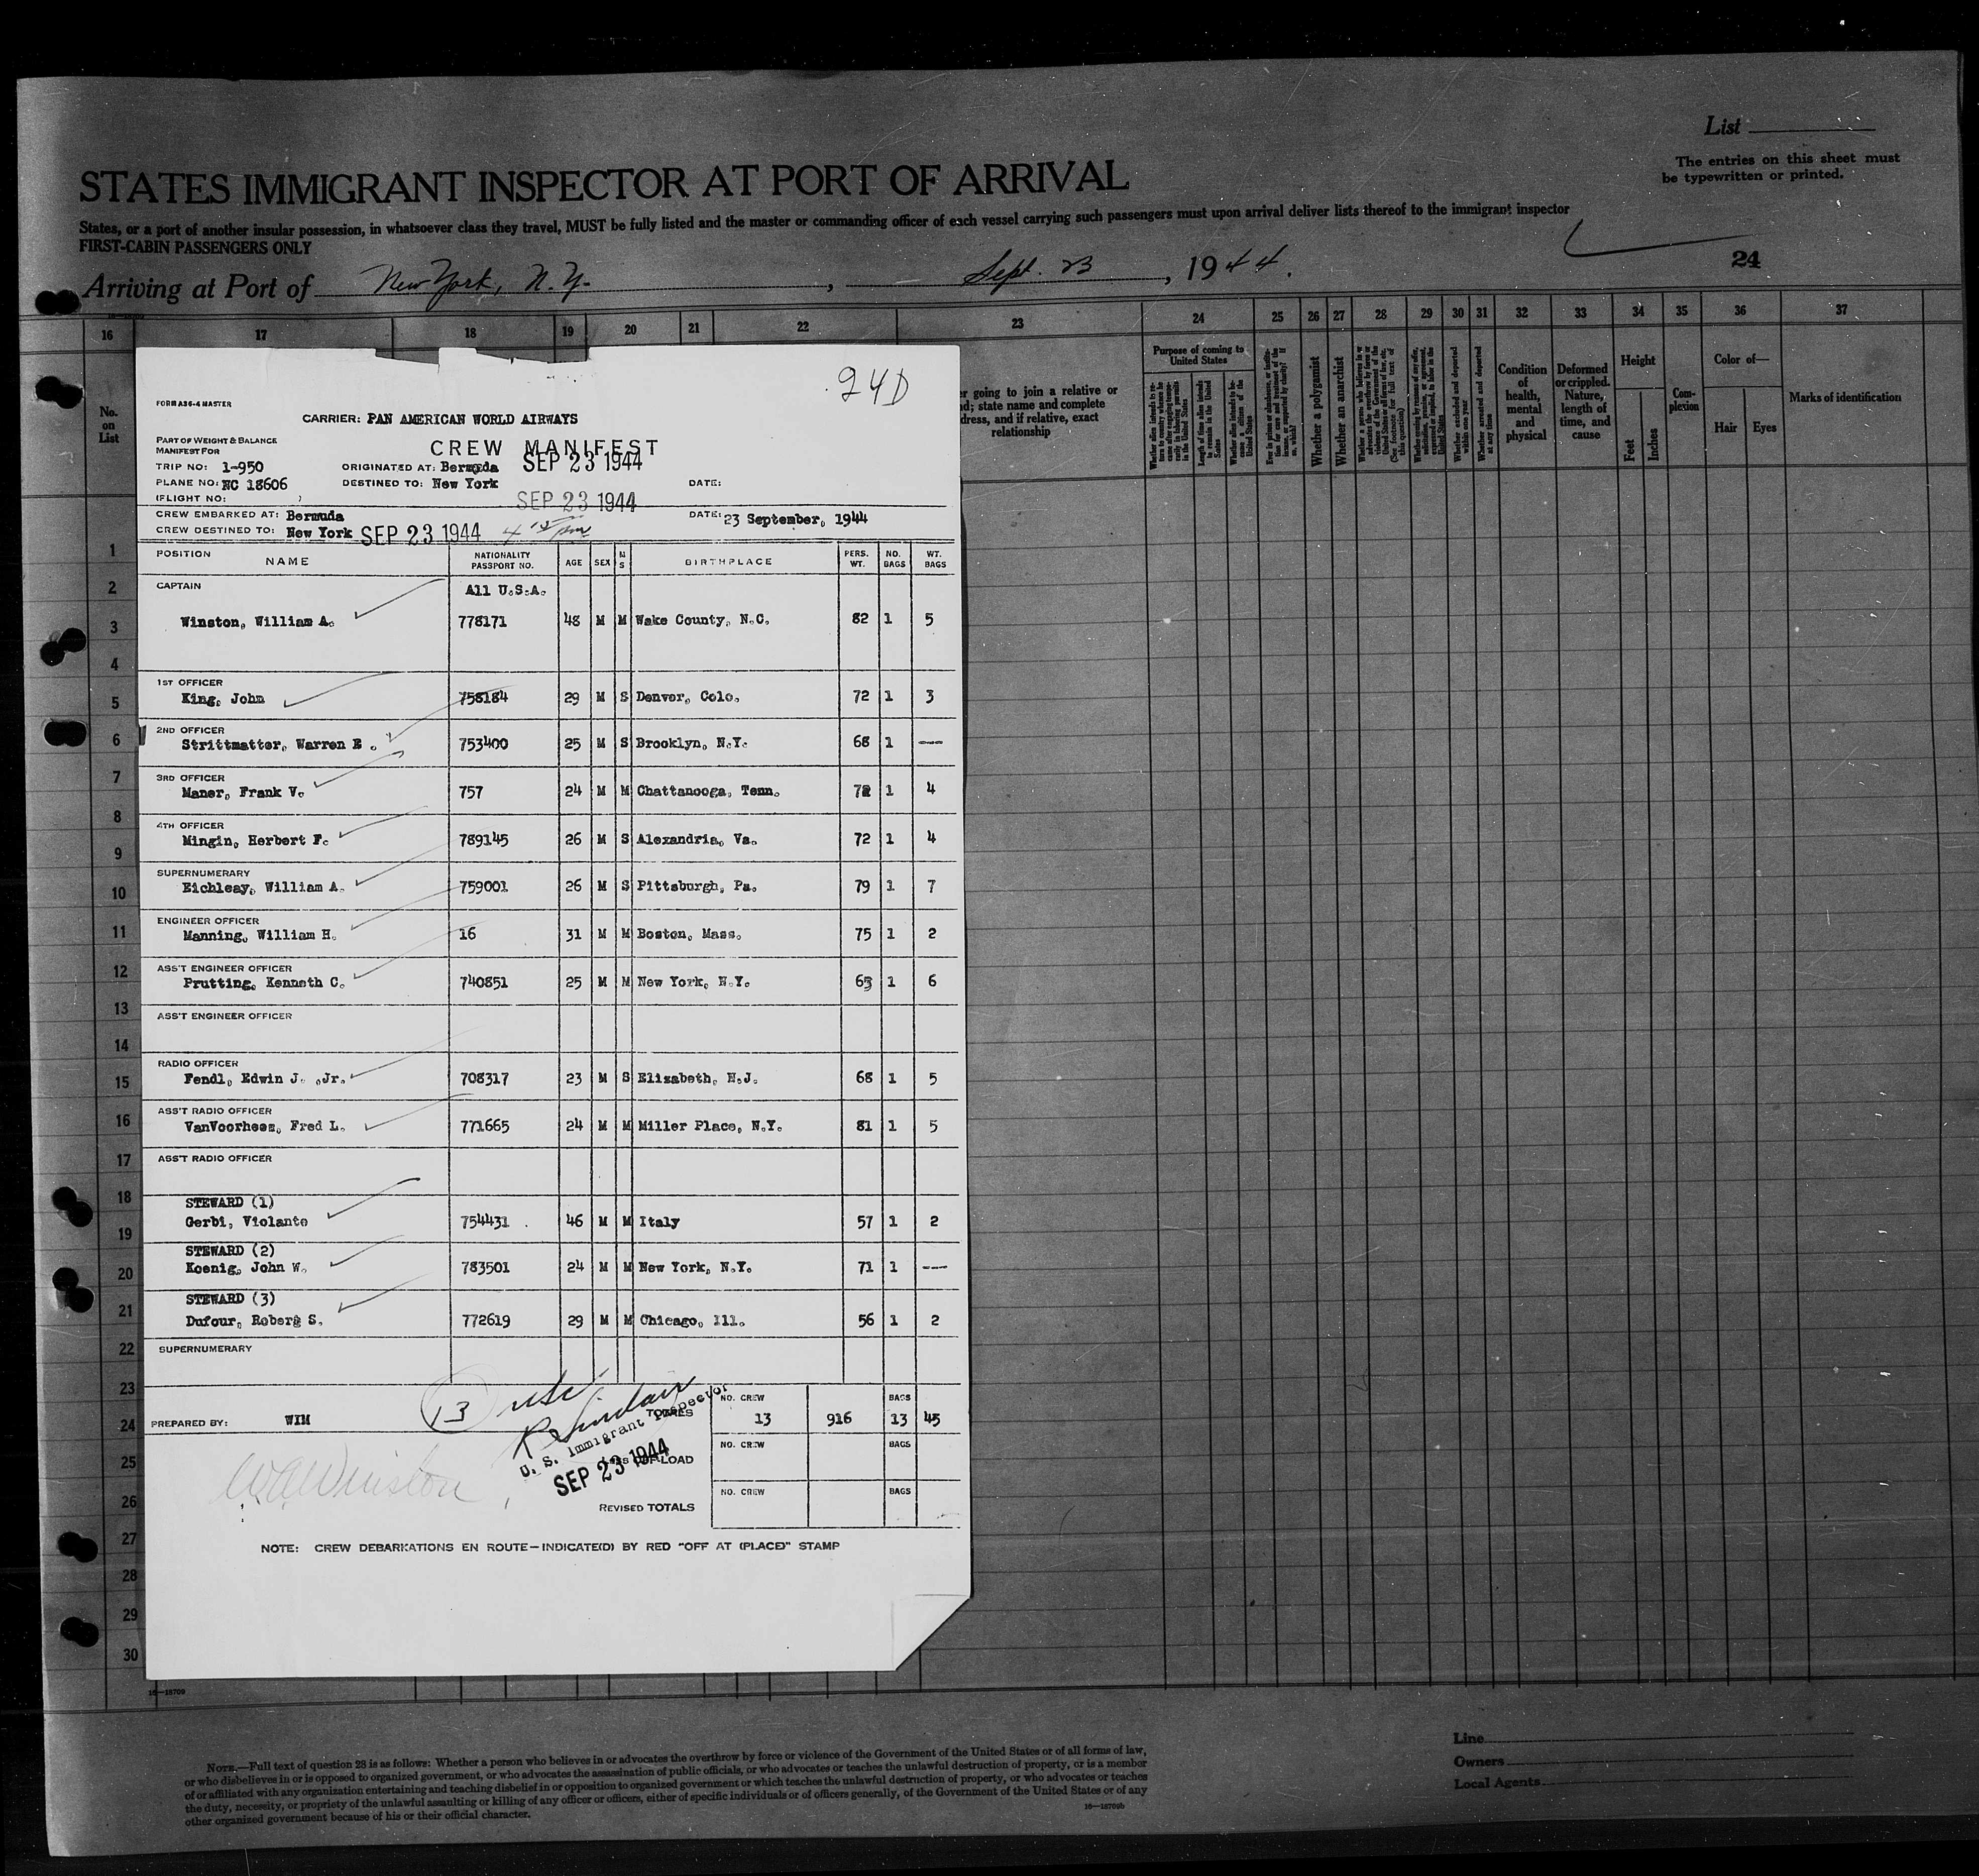 List
The entries on this sheet must
be typewritten or printed.
STATES IMMIGRANT INSPECTOR AT PORT OF ARRIVAL
States, or a port of another insular possession, in whatsoever class they travel, MUST be fully listed and the master or commanding officer of each vessel carrying such passengers must upon arrival deliver lists thereof to the immigrant inspector
FIRST-CABIN PASSENGERS ONLY
24
Arriving at Port of New York, N.Y. , Sept. 23 , 1944.
16 17 18 19 20 21 22 23 24 25 26 27 28 29 30 31 32 33 34 35 36 37
No. on List
er going to join a relative or
d; state name and complete
dress, and if relative, exact
relationship
Purpose of coming to United States
Whether a polygamist
Whether an anarchist
Condition of health, mental and physical
Deformed or crippled. Nature, length of time, and cause
Height
Feet Inches
Com-plexion
Color of—
Hair Eyes
Marks of identification
24D
FORM A36-4 MASTER
CARRIER: PAN AMERICAN WORLD AIRWAYS
PART OF WEIGHT & BALANCE
MANIFEST FOR
CREW MANIFEST
SEP 23 1944
TRIP NO: 1-950 ORIGINATED AT: Bermuda
PLANE NO: NC 18606 DESTINED TO: New York DATE:
(FLIGHT NO: )
SEP 23 1944
CREW EMBARKED AT: Bermuda DATE: 23 September, 1944
CREW DESTINED TO: New York SEP 23 1944 4 15 pm
POSITION NAME NATIONALITY PASSPORT NO. AGE SEX M S BIRTHPLACE PERS. WT. NO. BAGS WT. BAGS
CAPTAIN All U.S.A.
Winston, William A. 778171 48 M M Wake County, N.C. 82 1 5
1ST OFFICER
King, John 758184 29 M S Denver, Colo. 72 1 3
2ND OFFICER
Strittmatter, Warren E . 753400 25 M S Brooklyn, N.Y. 68 1 ---
3RD OFFICER
Maner, Frank V. 757 24 M M Chattanooga, Tenn. 72 1 4
4TH OFFICER
Mingin, Herbert F. 789145 26 M S Alexandria, Va. 72 1 4
SUPERNUMERARY
Eichleay, William A. 759001 26 M S Pittsburgh, Pa. 79 1 7
ENGINEER OFFICER
Manning, William H. 16 31 M M Boston, Mass. 75 1 2
ASS'T ENGINEER OFFICER
Prutting, Kenneth C. 740851 25 M M New York, N.Y. 63 1 6
ASS'T ENGINEER OFFICER
RADIO OFFICER
Fendl, Edwin J. ,Jr. 708317 23 M S Elizabeth, N.J. 68 1 5
ASS'T RADIO OFFICER
VanVoorhees, Fred L. 771665 24 M M Miller Place, N.Y. 81 1 5
ASS'T RADIO OFFICER
STEWARD (1)
Gerbi, Violante 754431 46 M M Italy 57 1 2
STEWARD (2)
Koenig, John W. 783501 24 M M New York, N.Y. 71 1 ---
STEWARD (3)
Dufour, Roberg S. 772619 29 M M Chicago, Ill. 56 1 2
SUPERNUMERARY
PREPARED BY: WIM
13
TOTALS
NO. CREW 13 916 BAGS 13 45
R Sinclair
U. S. Immigrant Inspector
SEP 23 1944
NO. CREW BAGS
WAWinston
REVISED TOTALS
NO. CREW BAGS
NOTE: CREW DEBARKATIONS EN ROUTE—INDICATE(D) BY RED "OFF AT (PLACE)" STAMP
1
2
3
4
5
6
7
8
9
10
11
12
13
14
15
16
17
18
19
20
21
22
23
24
25
26
27
28
29
30
16—18709
NOTE.—Full text of question 28 is as follows: Whether a person who believes in or advocates the overthrow by force or violence of the Government of the United States or of all forms of law,
or who disbelieves in or is opposed to organized government, or who advocates the assassination of public officials, or who advocates or teaches the unlawful destruction of property, or is a member
of or affiliated with any organization entertaining and teaching disbelief in or opposition to organized government or which teaches the unlawful destruction of property, or who advocates or teaches
the duty, necessity, or propriety of the unlawful assaulting or killing of any officer or officers, either of specific individuals or of officers generally, of the Government of the United States or of any
other organized government because of his or their official character.
16—18709b
Line
Owners
Local Agents